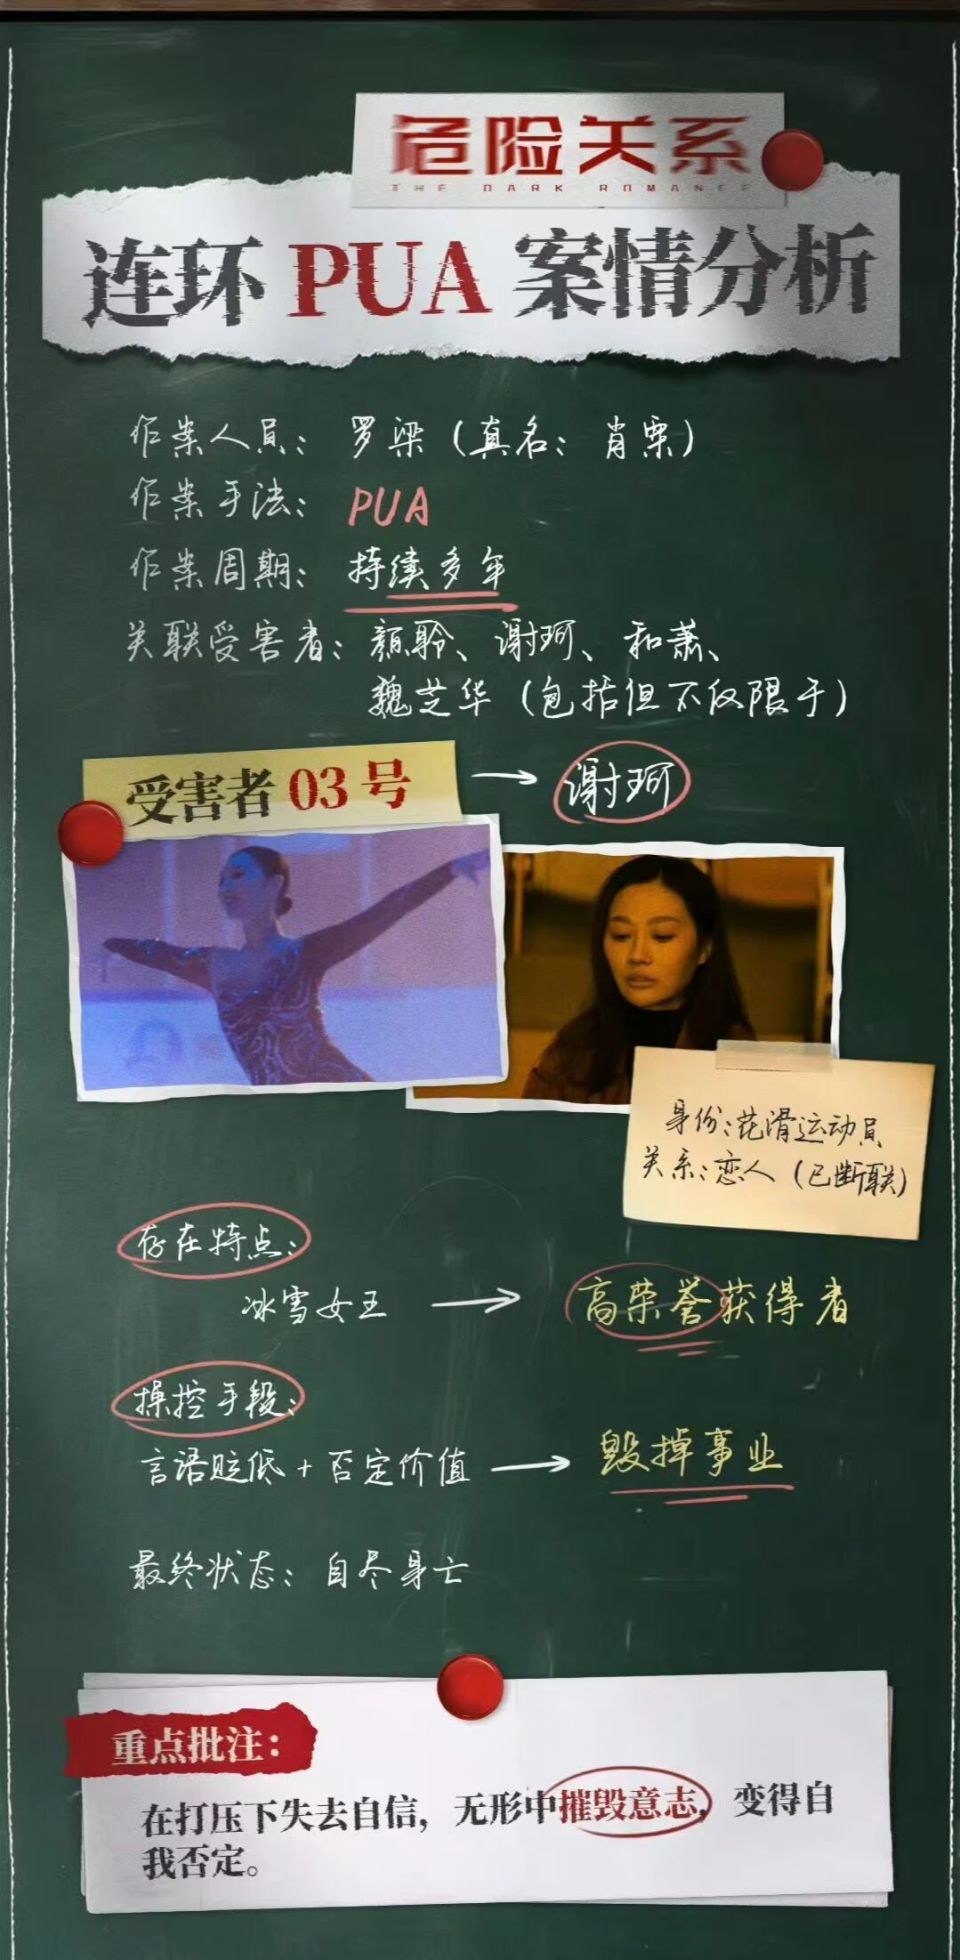 危险关系
THE DARK ROMANCE
连环 PUA 案情分析
作案人员：罗梁（真名：肖栗）
作案手法：PUA
作案周期：持续多年
关联受害者：颜聆、谢珂、和萧、
魏芝华（包括但不仅限于）
受害者 03 号 → 谢珂
身份：花滑运动员
关系：恋人（已断联）
存在特点：
冰雪女王 → 高荣誉获得者
操控手段：
言语贬低 + 否定价值 → 毁掉事业
最终状态：自尽身亡
重点批注：
在打压下失去自信，无形中摧毁意志，变得自
我否定。